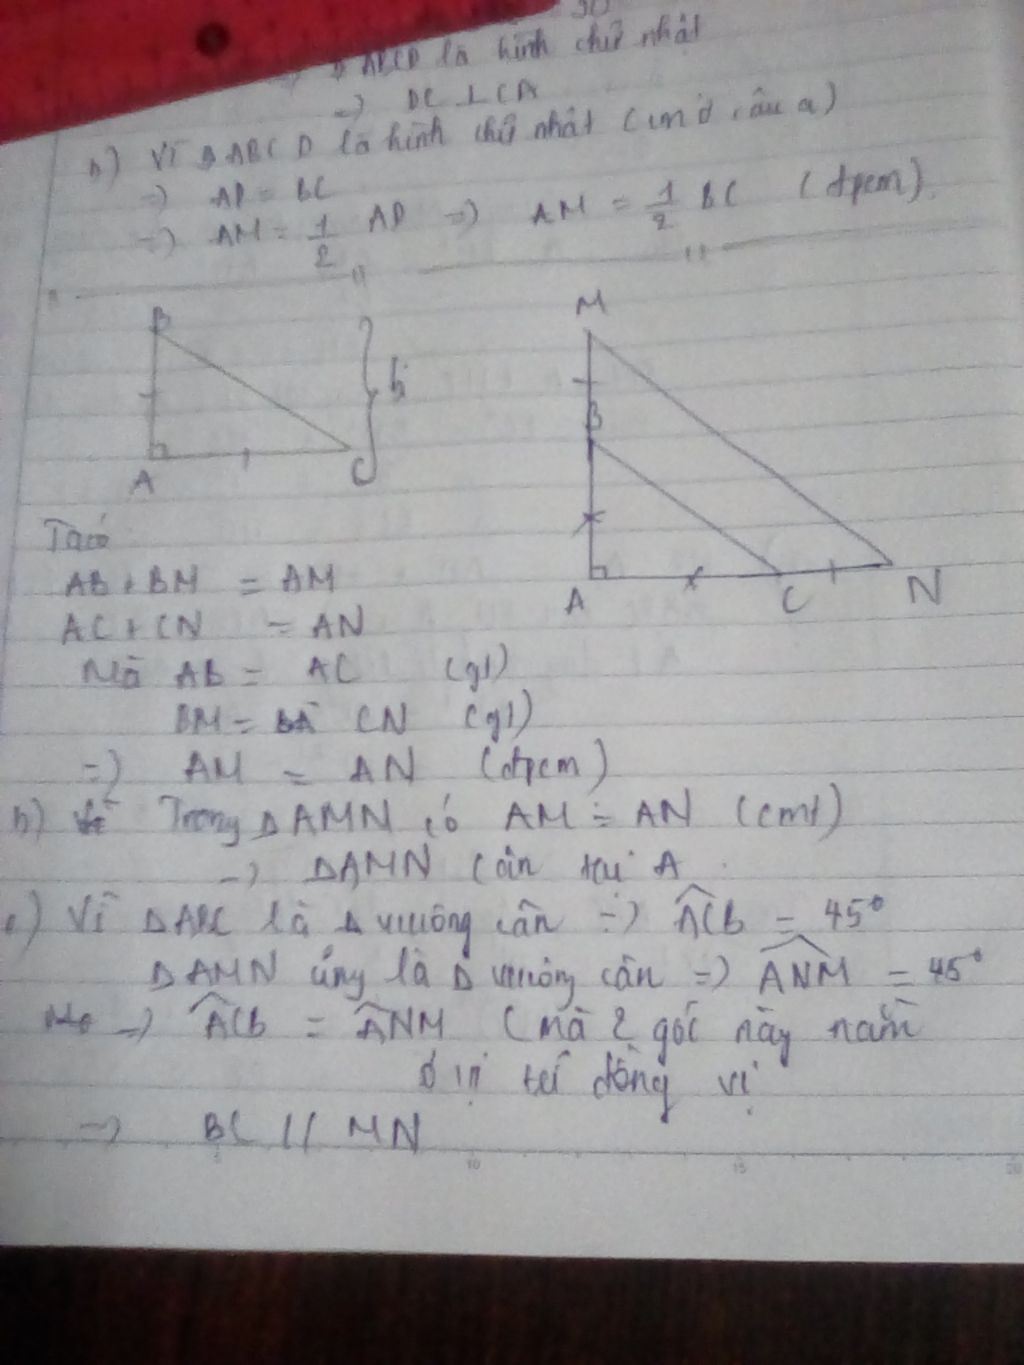 ABCD là hình chữ nhật
=) DC ⊥ CA
b) Vì ABCD là hình chữ nhật (cm ở câu a)
=) AD = BC
=) AM = 1/2 AD =) AM = 1/2 BC (đpcm)
B
A
C
M
B
A
C
N
Ta có
AB + BM = AM
AC + CN = AN
Mà AB = AC (gt)
BM = CN (gt)
=) AM = AN (đpcm)
b) Trong ΔAMN có AM = AN (cmt)
=) ΔAMN cân tại A
c) Vì ΔABC là Δ vuông cân =) ACB = 45°
ΔAMN cũng là Δ vuông cân =) ANM = 45°
=) ACB = ANM (mà 2 góc này nằm
ở vị trí đồng vị
=) BC // MN
5 10 15 20